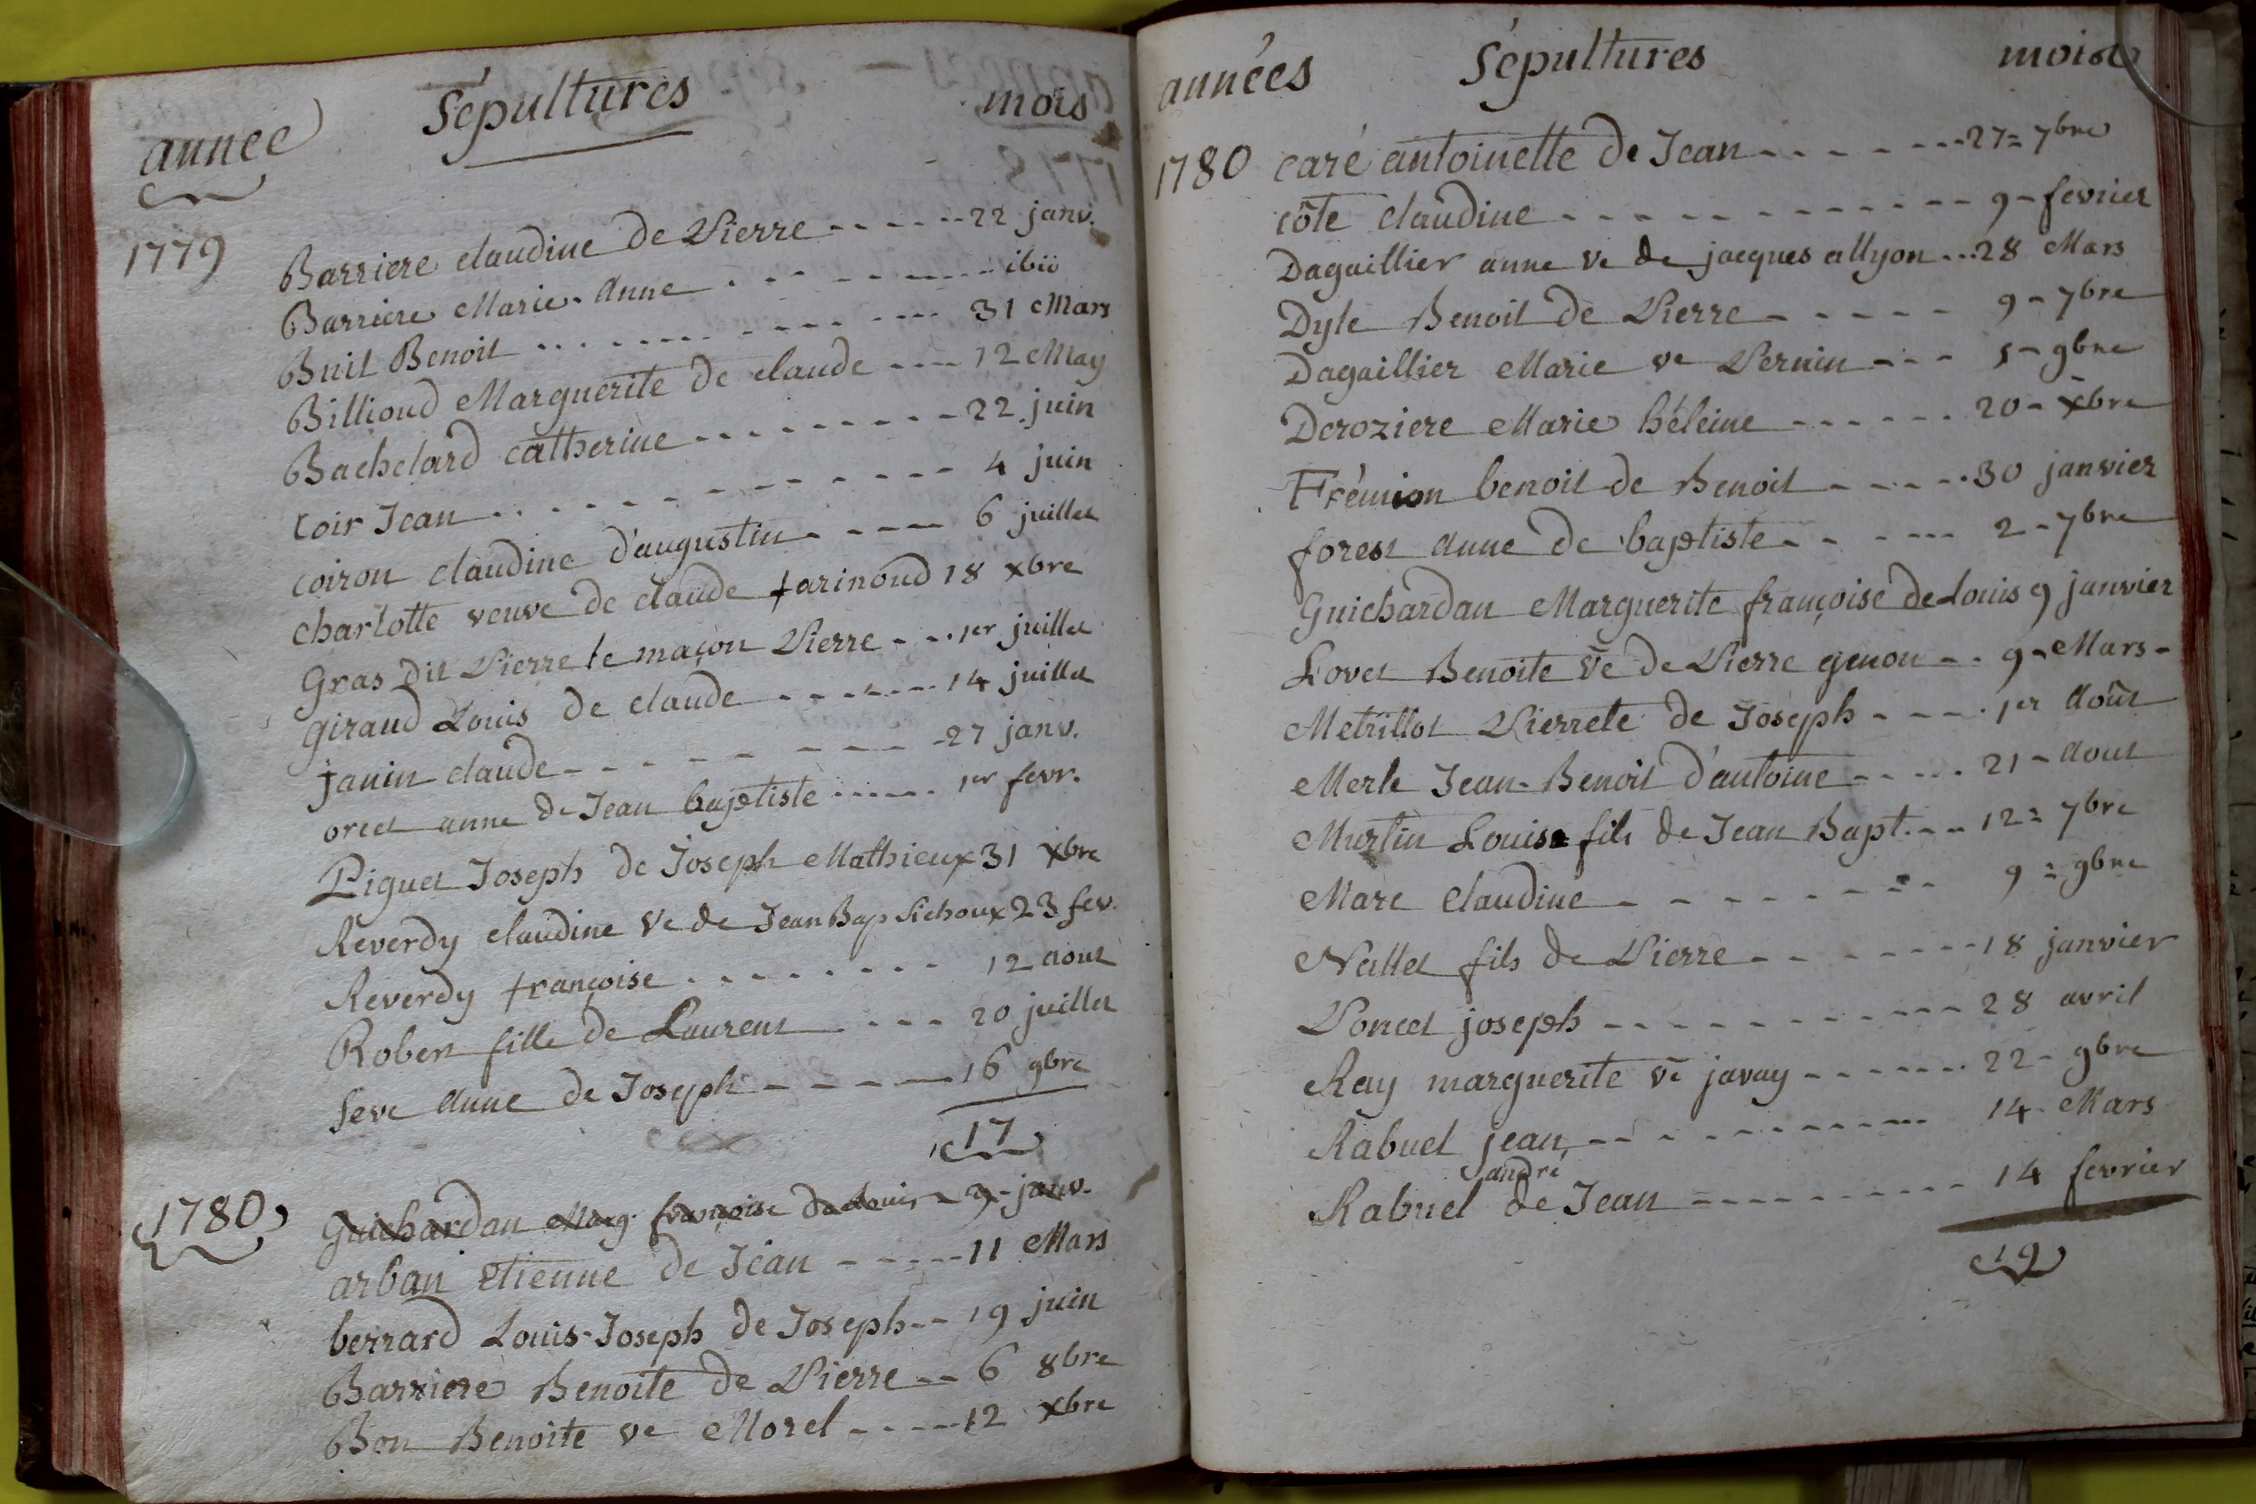 année Sépultures mois
1779 Barriere claudine de Pierre - - - - - 22 janv.
Barriere Marie-Anne - - - - - ibii
Buit Benoit - - - - - 31 Mars
Billioud Marguerite de claude - - - 12 May
Bachelard catherine - - - - - 22 juin
Coir Jean - - - - - 4 juin
coiron claudine d'augustin - - - - 6 juillet
charlotte veuve de claude farinoud 18 xbre
Gras dit Pierre le maçon Pierre - - - 1er juillet
giraud Louis de claude - - - - - 14 juillet
janin claude - - - - - 27 janv.
orcet anne de Jean baptiste - - - - 1er fevr.
Piguet Joseph de Joseph Mathieux 31 xbre
Reverdy claudine Ve de Jean Bap Sichoux 23 fev.
Reverdy françoise - - - - - 12 aout
Robert fille de Laurent - - - 20 juillet
Seve Anne de Joseph - - - - 16 9bre
17
1780 Guichardan Marg. françoise de Louis - 9 - janv.
arban Etienne de Jean - - - - 11 Mars
berrard Louis-Joseph de Joseph - - 19 juin
Barriere Benoite de Pierre - - 6 8bre
Bon Benoite ve Morel - - - - 12 xbre
années Sépultures mois
1780 caré antoinette de Jean - - - - - 27 = 7bre
côte claudine - - - - - 9 - fevrier
Dagaillier anne ve de jacques allyon ... 28 Mars
Dyle Benoit de Pierre - - - - - 9 - 7bre
Dagaillier Marie ve Pernin - - - 5 - 9bre
Deroziere Marie héleine - - - - - 20 - xbre
Frémion benoit de Benoit - - - - - 30 janvier
forest Anne de baptiste - - - - 2 - 7bre
Guichardan Marguerite françoise de Louis 9 janvier
Lovet Benoite ve de Pierre genon - - 9 - Mars -
Metrillot Pierrete de Joseph - - - - 1er Août
Merle Jean-Benoit d'antoine - - - - 21 - Aout
Murtin Louis fils de Jean Bapt. - - 12 = 7bre
Marc Claudine - - - - - 9 = 9bre
Nallet fils de Pierre - - - - - 18 janvier
Poncet joseph - - - - - 28 avril
Ray marguerite ve javay - - - - - 22 - 9bre
Rabuel jean - - - - - 14 - Mars
andré
Rabuel de Jean - - - - - 14 fevrier
19